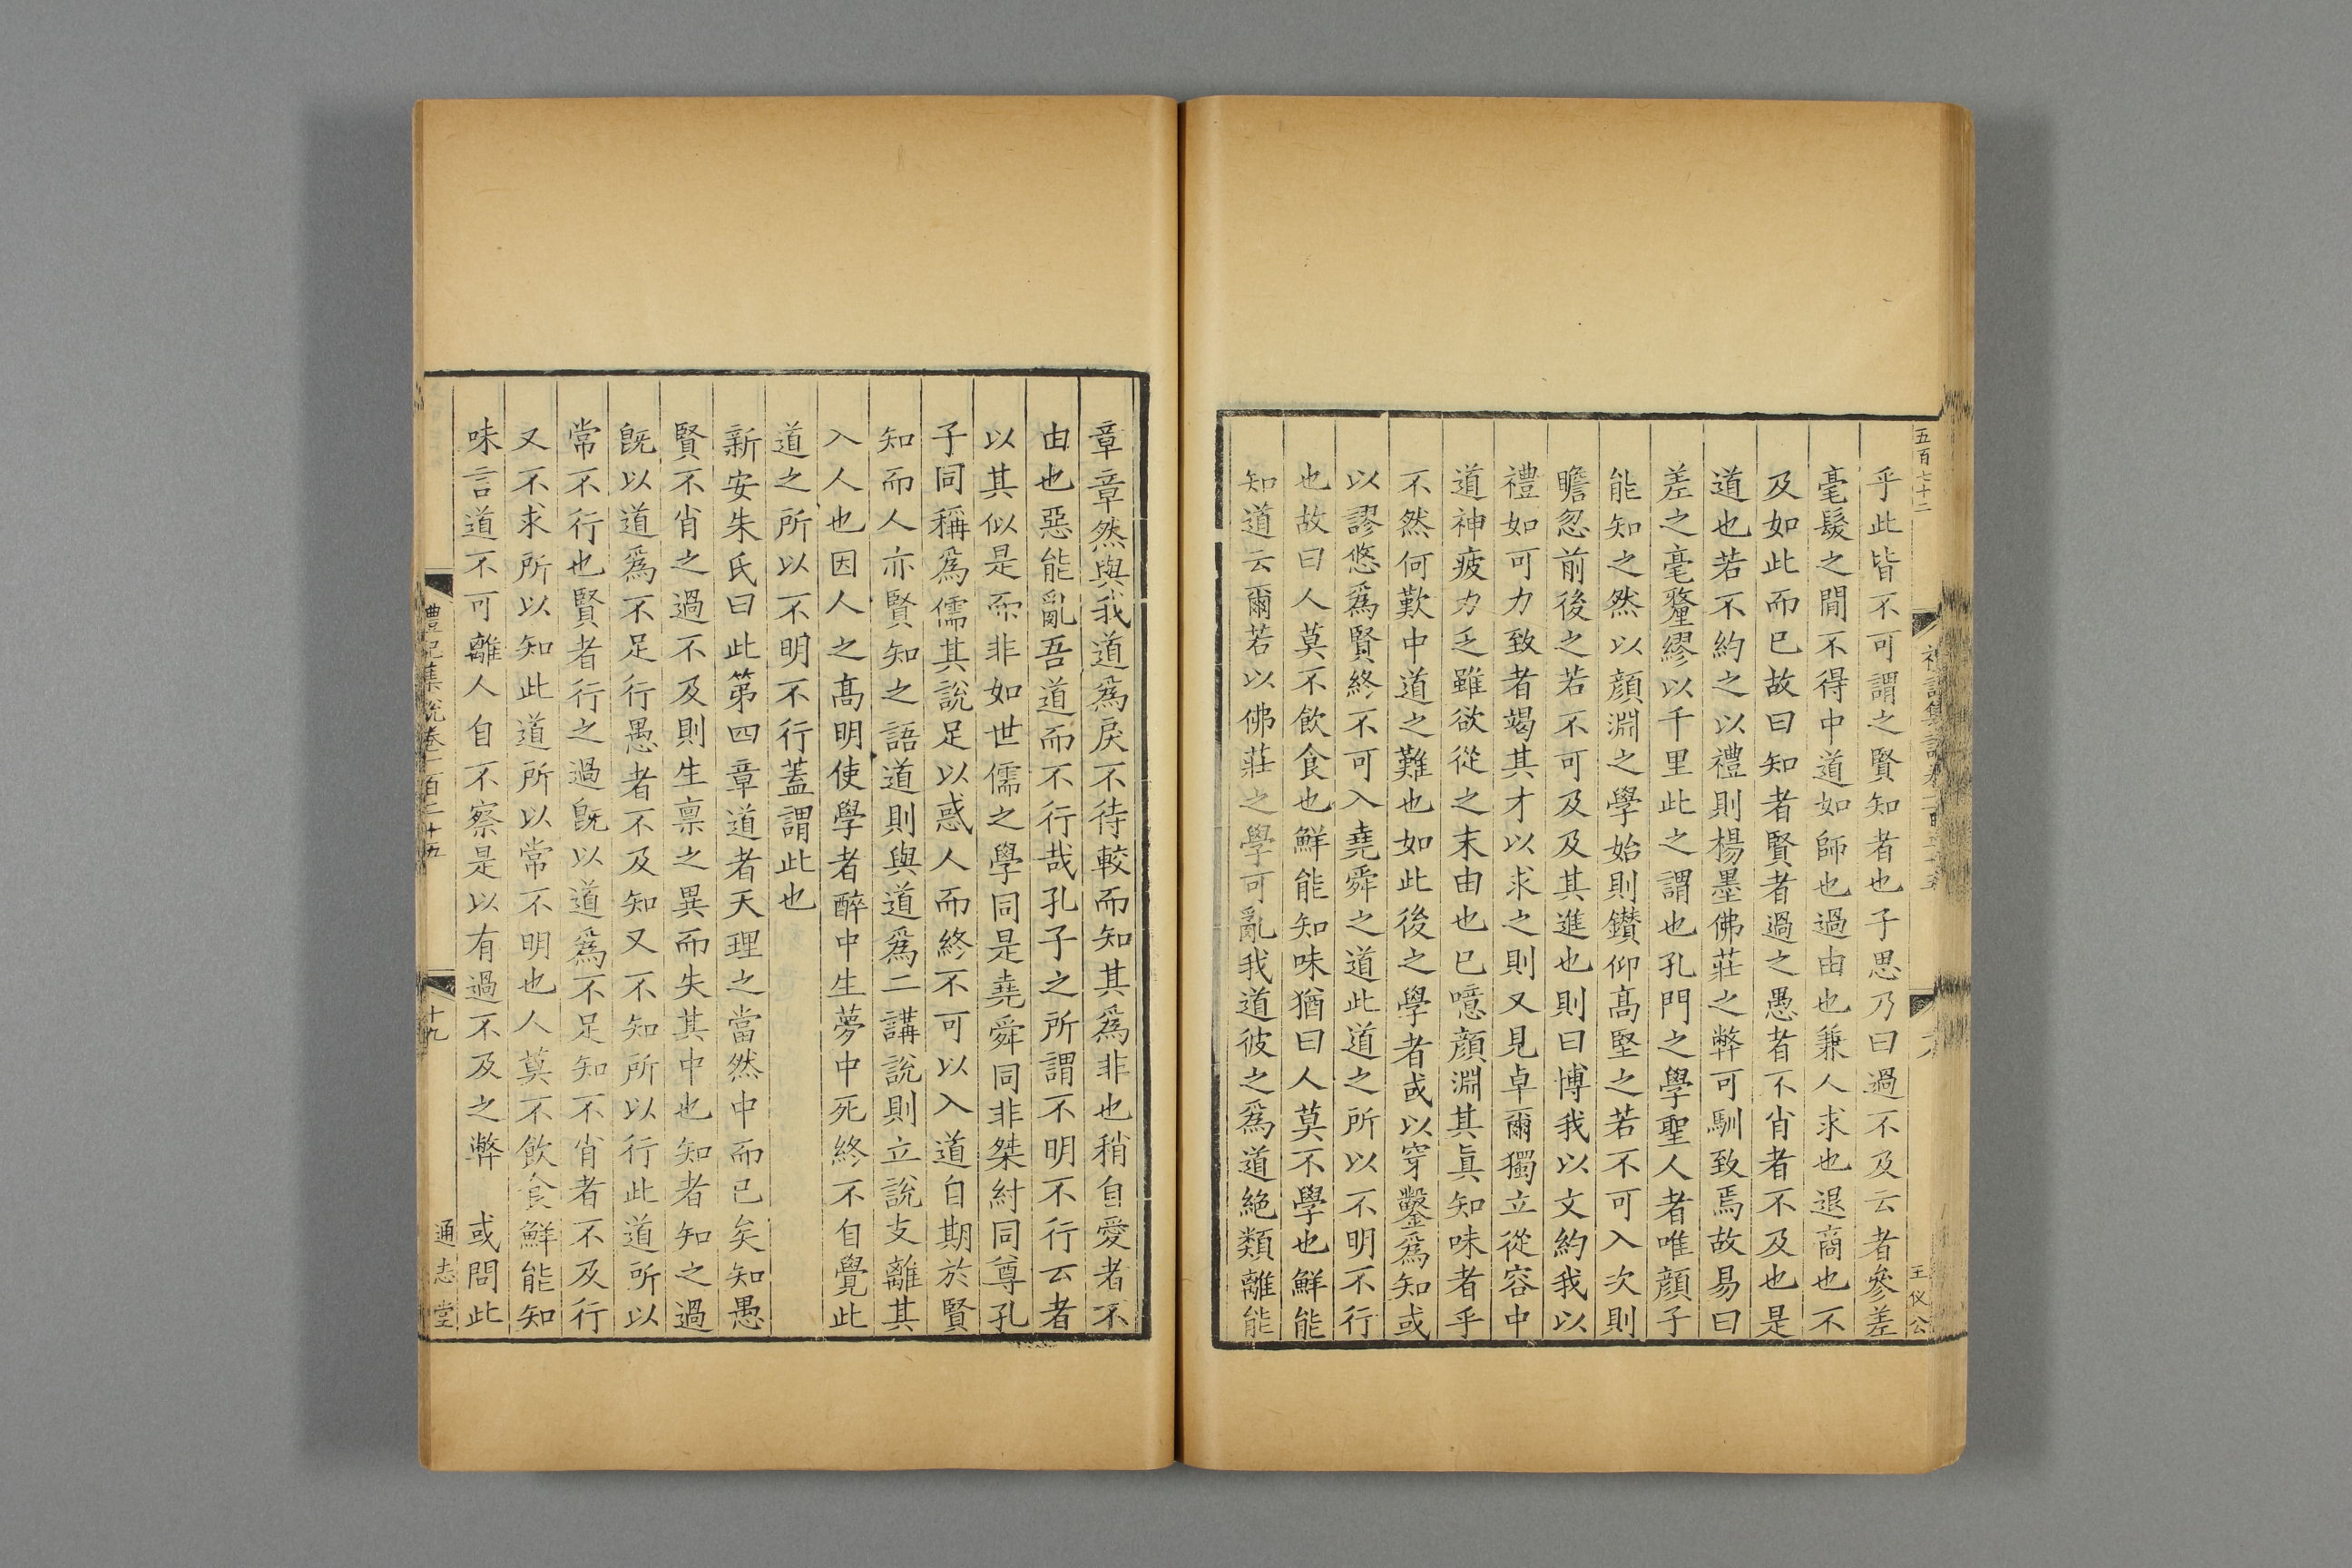 五百七十二
乎此皆不可謂之賢知者也子思乃曰過不及云者參差
毫髮之間不得中道如師也過由也兼人求也退商也不
及如此而已故曰知者賢者過之愚者不肖者不及也是
道也若不約之以禮則楊墨佛莊之弊可馴致焉故易曰
差之毫釐繆以千里此之謂也孔門之學聖人者唯顔子
能知之然以顔淵之學始則鑚仰髙堅之若不可入次則
瞻忽前後之若不可及及其進也則曰博我以文約我以
禮如可力致者竭其才以求之則又見卓爾獨立從容中
道神疲力乏雖欲從之末由也已噫顔淵其眞知味者乎
不然何歎中道之難也如此後之學者或以穿鑿爲知或
以謬悠爲賢終不可入堯舜之道此道之所以不明不行
也故曰人莫不飲食也鮮能知味猶曰人莫不學也鮮能
知道云爾若以佛莊之學可亂我道彼之爲道絶類離能
王仪公
章章然與我道爲戾不待較而知其爲非也稍自愛者不
由也惡能亂吾道而不行哉孔子之所謂不明不行云者
以其似是而非如世儒之學同是堯舜同非桀紂同尊孔
子同稱爲儒其說足以惑人而終不可以入道自期於賢
知而人亦賢知之語道則與道爲二講說則立說支離其
入人也因人之髙明使學者醉中生夢中死終不自覺此
道之所以不明不行蓋謂此也
新安朱氏曰此第四章道者天理之當然中而已矣知愚
賢不肖之過不及則生禀之異而失其中也知者知之過
旣以道爲不足行愚者不及知又不知所以行此道所以
常不行也賢者行之過旣以道爲不足知不肖者不及行
又不求所以知此道所以常不明也人莫不飲食鮮能知
味言道不可離人自不察是以有過不及之弊 或問此
禮記集說卷一百二十五 十九 通志堂